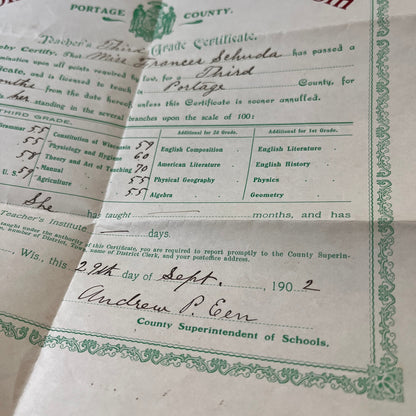 PORTAGE COUNTY.
Teacher's Third Grade Certificate.
by Certify, That Miss Frances Schuda has passed a
mination upon all points required by law, for a Third
icate, and is licensed to teach in Portage County, for
onths from the date hereof, unless this Certificate is sooner annulled.
her standing in the several branches upon the scale of 100:
THIRD GRADE. Additional for 2d Grade. Additional for 1st Grade.
Grammar 55 Constitution of Wisconsin 59 English Composition English Literature
55 Physiology and Hygiene 60 American Literature English History
58 Theory and Art of Teaching 70 Physical Geography Physics
Manual 55 Algebra Geometry
U. S. 57 Agriculture 55
She has taught months, and has
Teacher's Institute days.
ught under the authority of this Certificate, you are required to report promptly to the County Superin-
name, number of District, Town, name of District Clerk, and your postoffice address.
Wis., this 29th day of Sept. 1902
Andrew P. Een
County Superintendent of Schools.